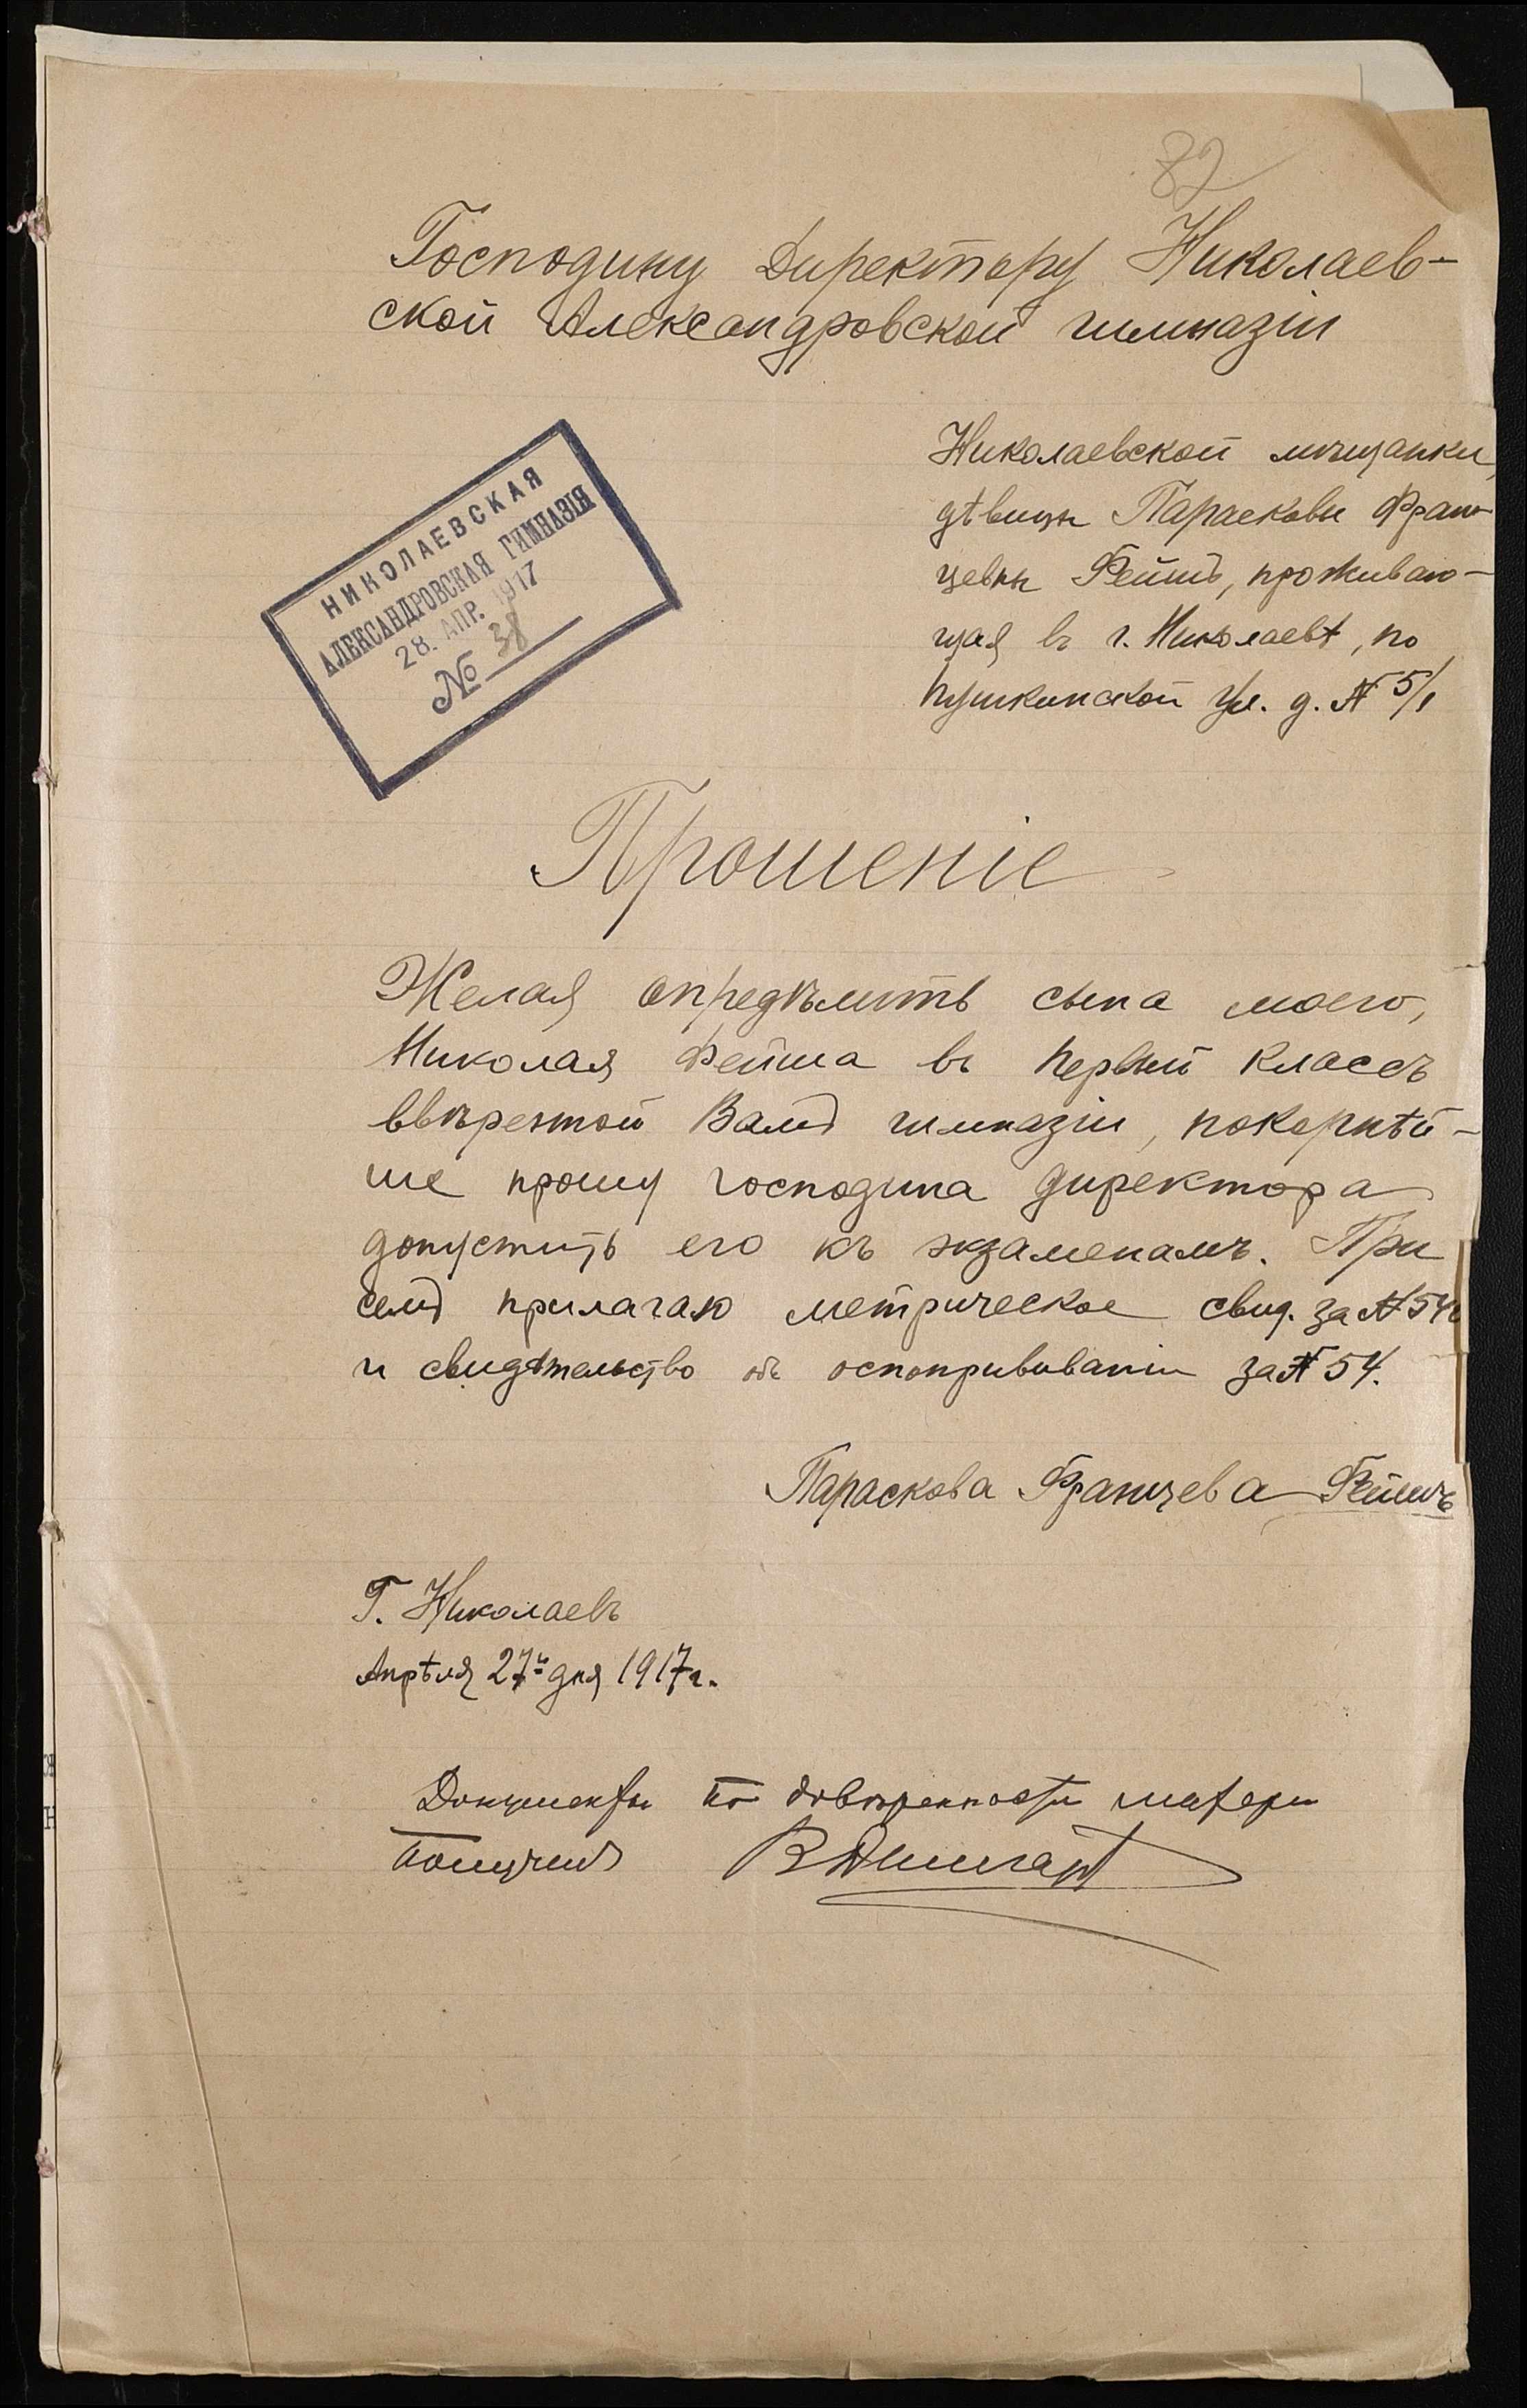 82
Господину Директору Николаев-
ской Александровской гимназіи
Николаевской мѣщанки,
дѣвицы Парасковы Фран-
цевны Фейшъ, проживаю-
щая въ г. Николаевѣ, по
Пушкинской ул. д. № 5/1
НИКОЛАЕВСКАЯ
АЛЕКСАНДРОВСКАЯ ГИМНАЗІЯ
28. АПР. 1917
№ 38
Прошеніе
Желая опредѣлить сына моего,
Николая Фейша въ первый классъ
ввѣренной Вамъ гимназіи, покорнѣй-
ше прошу господина директора
допустить его къ экзаменамъ. При
семъ прилагаю метрическое свид. за №
и свидѣтельство объ оспопрививаніи за № 54.
Параскова Францева Фейшъ
Г. Николаевъ
Апрѣля 27го дня 1917 г.
Документы по довѣренности матери
получилъ